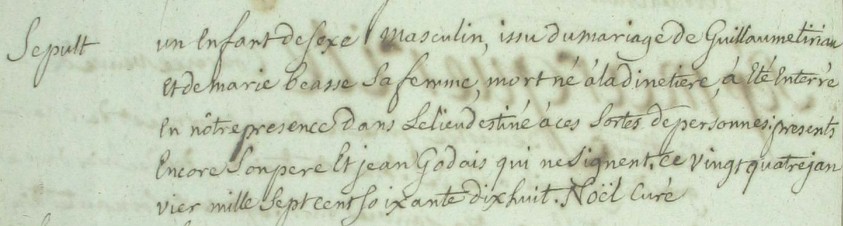 Sepult un Enfant de sexe masculin, issu du mariage de Guillaume tiriau
Et de marie beasse sa femme, mort né à la dinetiere, à Eté Enterré
En nôtre presence dans Le lieu destiné à ces sortes de personnes: presents
Encore son pere Et jean Godais qui ne signent. ce vingt quatre jan
vier mille sept cent soixante dixhuit. Noël Curé